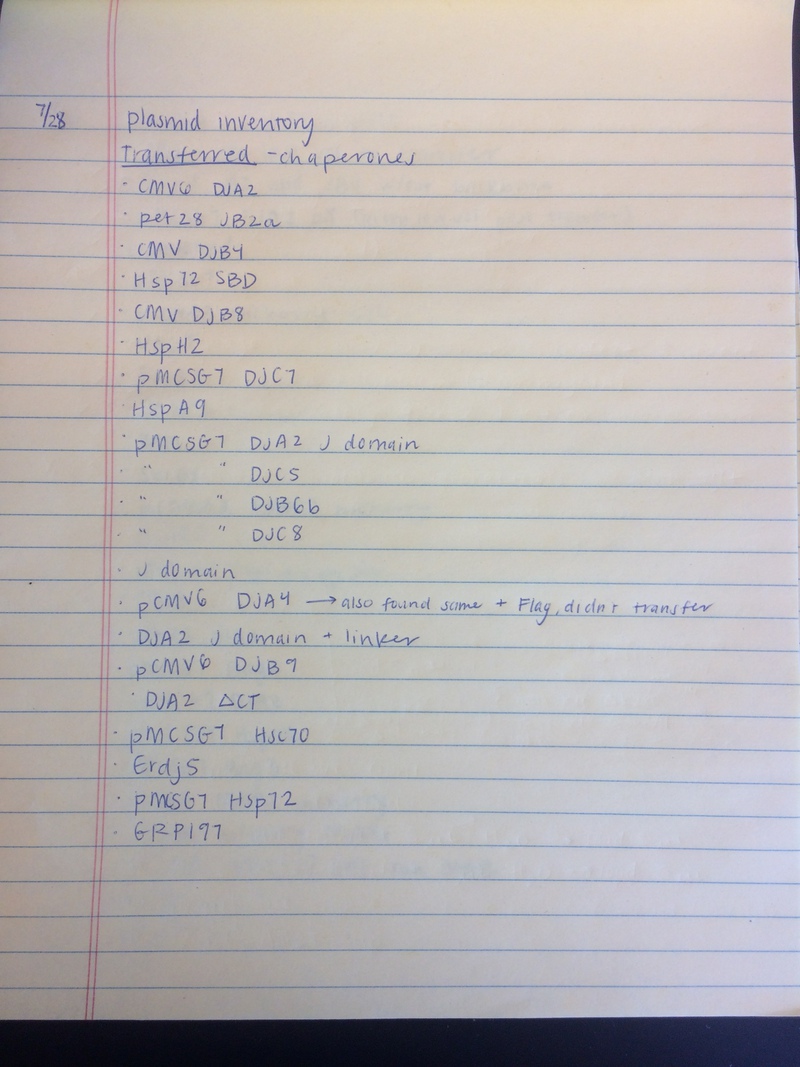 7/28 plasmid inventory
Transferred - chaperones
· CMV6 DJA2
· pet28 JB2a
· CMV DJB4
· Hsp72 SBD
· CMV DJB8
· HspH2
· pMCSG7 DJC7
· HspA9
· pMCSG7 DJA2 J domain
· " " DJC5
· " " DJB6b
· " " DJC8
· J domain
· pCMV6 DJA4 → also found same + Flag, didn't transfer
· DJA2 J domain + linker
· pCMV6 DJB9
· DJA2 ΔCT
· pMCSG7 HSC70
· Erdj5
· pMCSG7 Hsp72